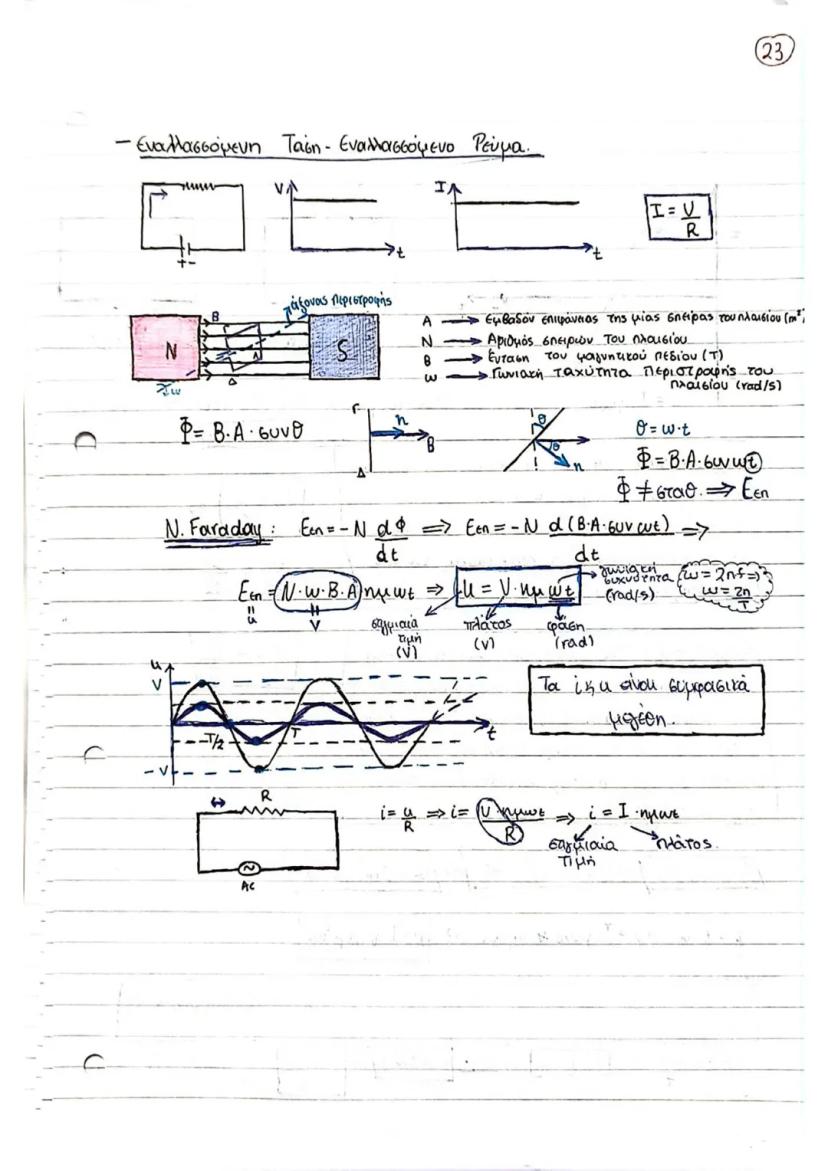 23
- Εναλλασσόμενη Τάση - Εναλλασσόμενο Ρεύμα.
V
t
I
t
I = V/R
+ -
άξονας περιστροφής
B
N
S
Γ
Δ
ω
A → Εμβαδόν επιφάνειας της μίας σπείρας του πλαισίου (m²)
N → Αριθμός σπειρών του πλαισίου
B → Ένταση του μαγνητικού πεδίου (T)
ω → Γωνιακή ταχύτητα περιστροφής του πλαισίου (rad/s)
Φ = B·A·συνθ
Γ
n
B
Δ
θ
θ
n
θ = ω·t
Φ = B·A·συνωt
Φ ≠ σταθ. ⇒ Eεπ
N. Faraday: Eεπ = -N dΦ/dt ⇒ Eεπ = -N d(B·A·συνωt)/dt ⇒
Eεπ = N·ω·B·A ημωt ⇒ u = V·ημωt
u
V
στιγμιαία τιμή (V)
πλάτος (V)
φάση (rad)
γωνιακή συχνότητα (rad/s)
ω = 2πf ⇒
ω = 2π/T
u
V
T/2
T
t
-V
Τα i & u είναι συμφασικά
μεγέθη.
R
AC
i = u/R ⇒ i = V·ημωt/R ⇒ i = I·ημωt
στιγμιαία τιμή
πλάτος.